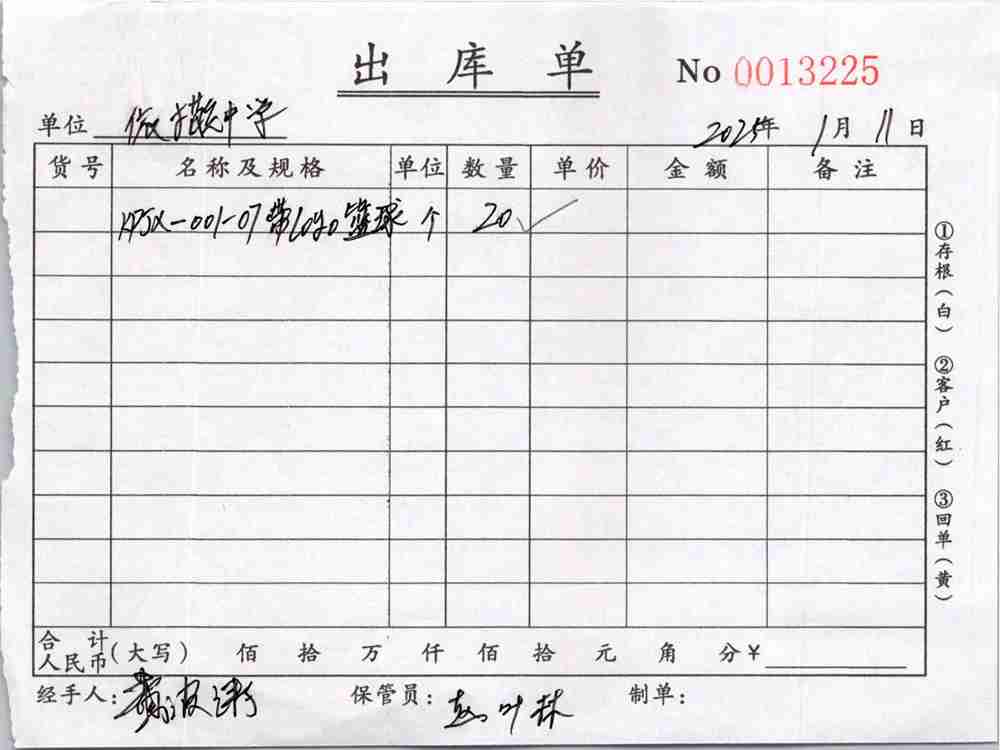 出库单 No 0013225
单位 中学 2025年 1月 11日
货号 名称及规格 单位 数量 单价 金额 备注
KPJX-001-07带logo篮球 个 20 ✓
①存根(白) ②客户(红) ③回单(黄)
合计
人民币(大写) 佰 拾 万 仟 佰 拾 元 角 分¥
经手人: 保管员: 叶林 制单: